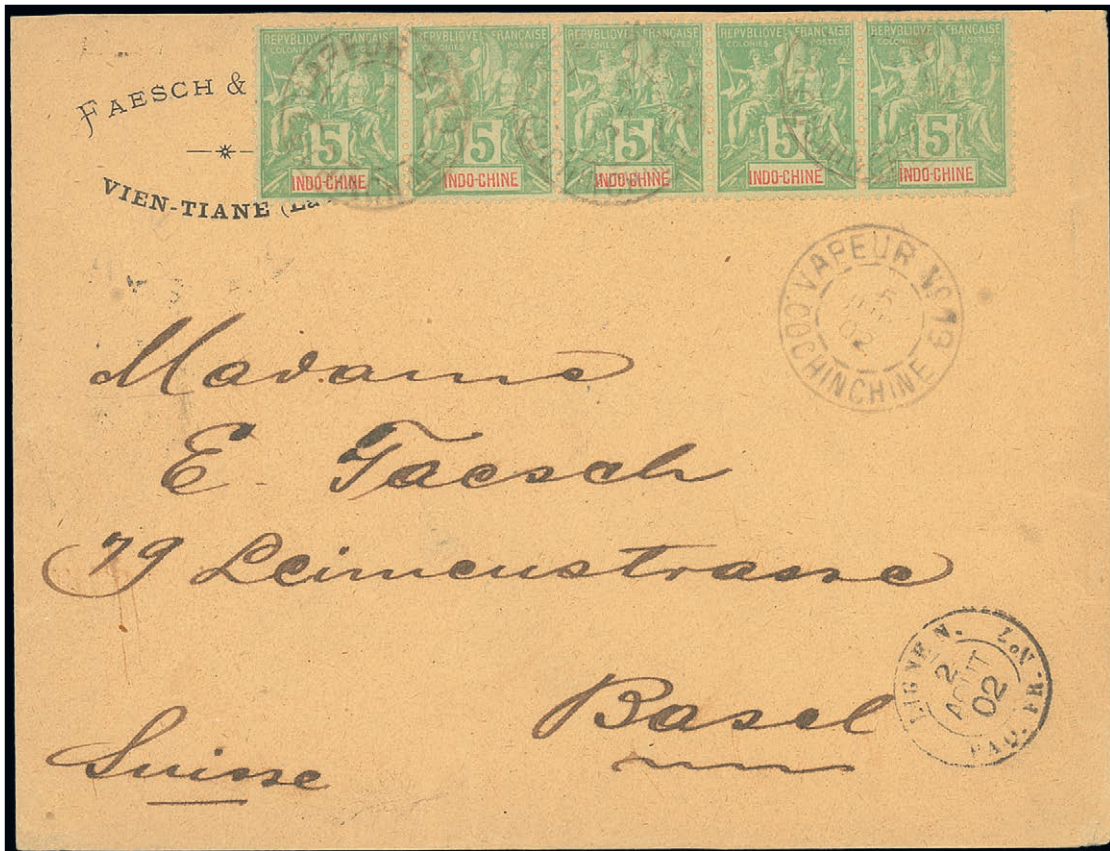 REPVBLIQVE FRANÇAISE
COLONIES POSTES
5
INDO-CHINE
REPVBLIQVE FRANÇAISE
COLONIES POSTES
5
INDO-CHINE
REPVBLIQVE FRANÇAISE
COLONIES POSTES
5
INDO-CHINE
REPVBLIQVE FRANÇAISE
COLONIES POSTES
5
INDO-CHINE
REPVBLIQVE FRANÇAISE
COLONIES POSTES
5
INDO-CHINE
FAESCH &
VIEN-TIANE (La
VAPEUR No 13
02
COCHINCHINE
Madame
E. Faesch
79 Leimenstrasse
Basel
Suisse
LIGNE N.
PAQ. FR. No
2
AOUT
02